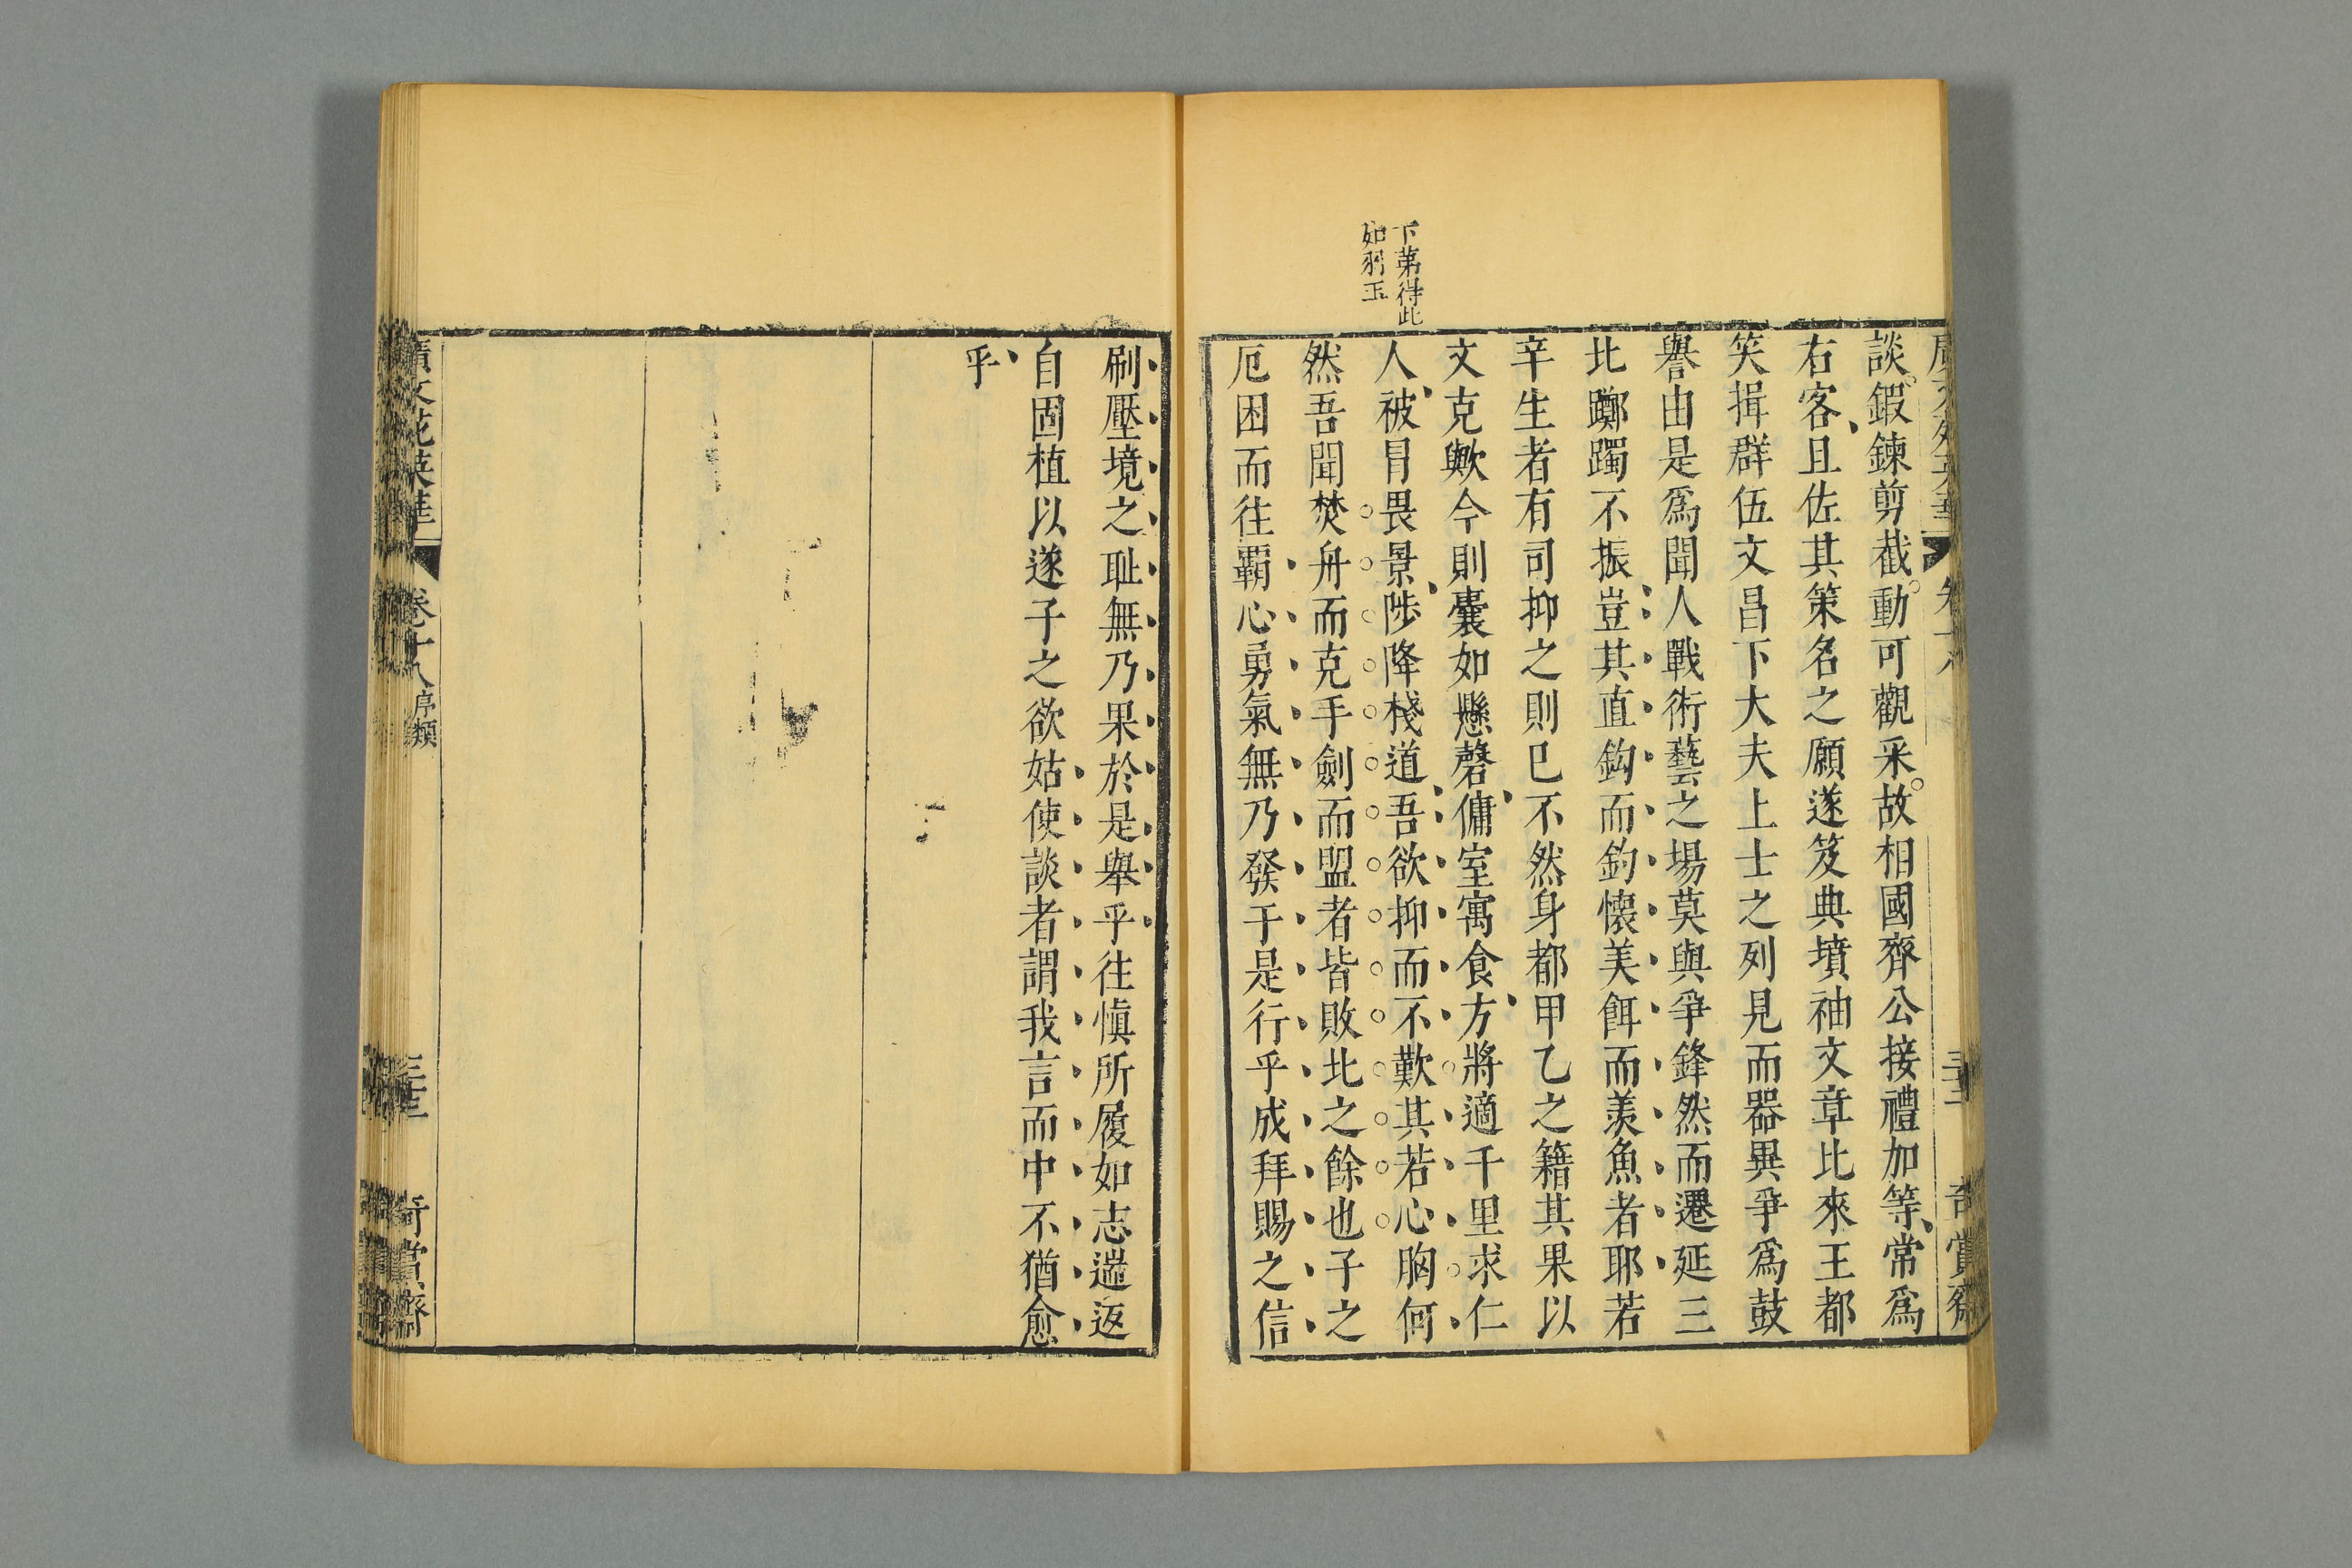 下第得此
如躬玉
談鍜鍊剪截動可觀采故相國齊公接禮加等常爲
右客且佐其策名之願遂笈典墳袖文章比來王都
笑揖群伍文昌下大夫上士之列見而器異爭爲鼓
譽由是爲聞人戰術藝之場莫與爭鋒然而遷延三
北躑躅不振豈其直鈎而釣懷美餌而羡魚者耶若
辛生者有司抑之則已不然身都甲乙之籍其果以
文克歟今則囊如懸磬傭室寓食方將適千里求仁
人被冒畏景陟降棧道吾欲抑而不歎其若心胸何
然吾聞焚舟而克手劍而盟者皆敗北之餘也子之
厄困而往覇心勇氣無乃發于是行乎成拜賜之信
刷壓境之耻無乃果於是舉乎往愼所履如志遄返
自固植以遂子之欲姑使談者謂我言而中不猶愈
乎
廣文苑英華 卷十八 序類 三十三 奇賞齋